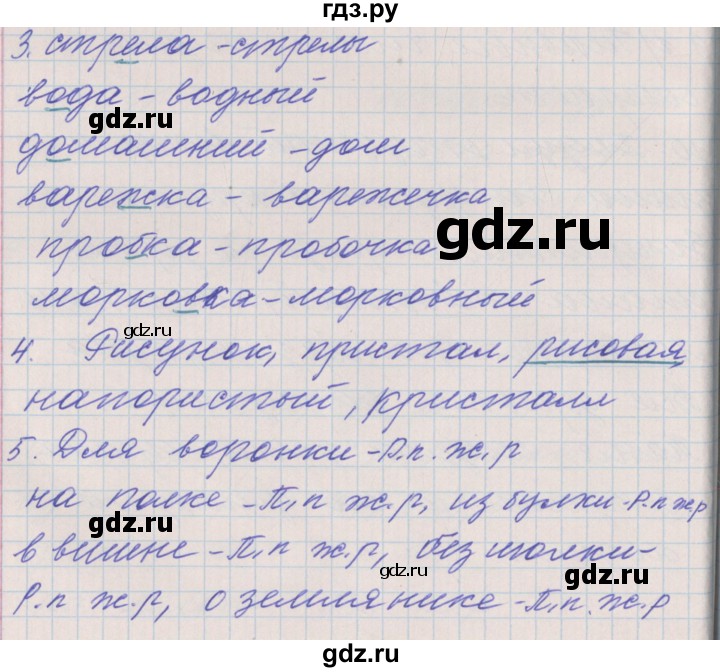 гдз.ру
3. стрела - стрелы
вода - водный
gdz.ru
домашний - дом
варежка - варежечка
gdz.ru
пробка - пробочка
морковка - морковный
gdz.ru
4. Рисунок, пристал, рисовая,
напористый, кристалл
5. Для воронки - Р.п. ж.р
на полке - П.п ж.р, из булки - Р.п ж.р
gdz.ru
в вишне - П.п ж.р, без иголки -
gdz.ru
Р.п ж.р, о землянике - П.п. ж.р
gdz.ru